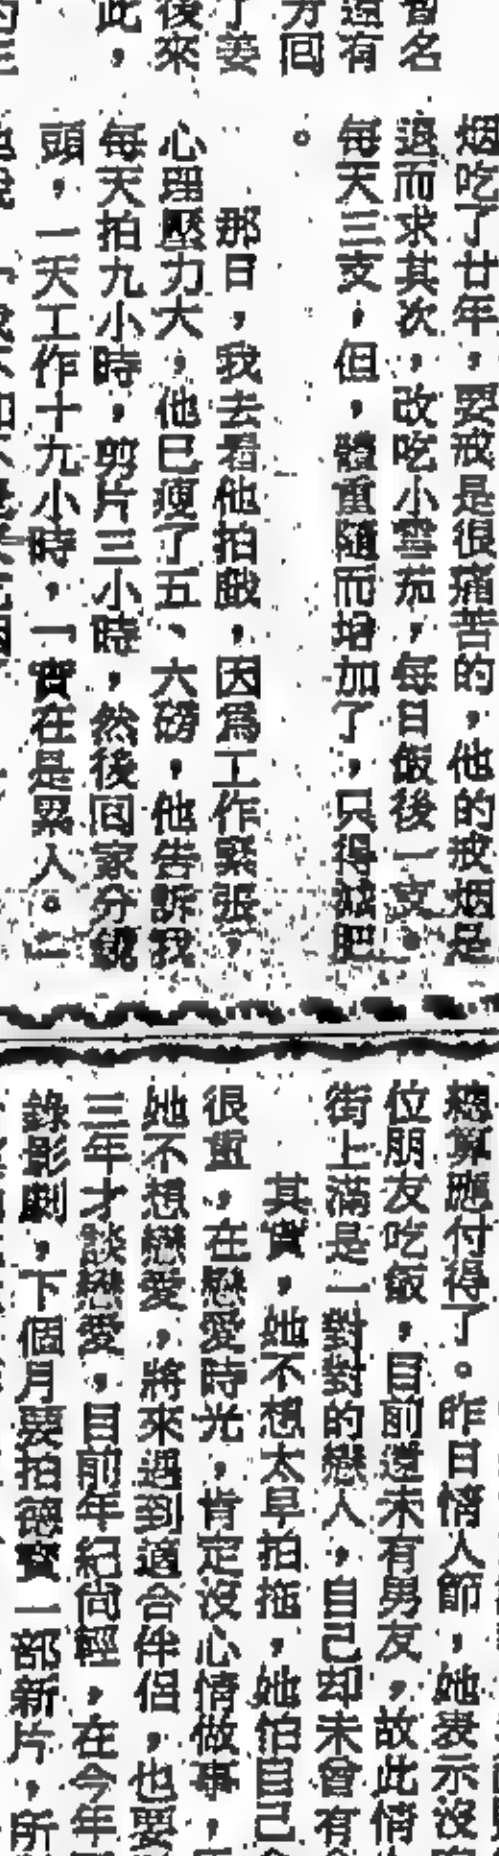 曾名
還有
方囘
了姜
後來
此，
烟吃了廿年，要戒是很痛苦的，他的戒烟是
退而求其次，改吃小雪茄，每日飯後一支。
每天三支，但，體重隨而增加了，只得減肥
。
那日，我去看他拍戲，因爲工作緊張，
心理壓力大，他已瘦了五、六磅，他告訴我
每天拍九小時，剪片三小時，然後囘家分鏡
頭，一天工作十九小時，「實在是累人。」
總算應付得了。昨日情人節，她表示沒
位朋友吃飯，目前還未有男友，故此情
街上滿是一對對的戀人，自己却未曾有
其實，她不想太早拍拖，她怕自己
很重，在戀愛時光，肯定沒心情做事，
她不想戀愛，將來遇到適合伴侶，也要
三年才談戀愛，目前年紀尙輕，在今年
錄影劇，下個月要拍德寶一部新片，所